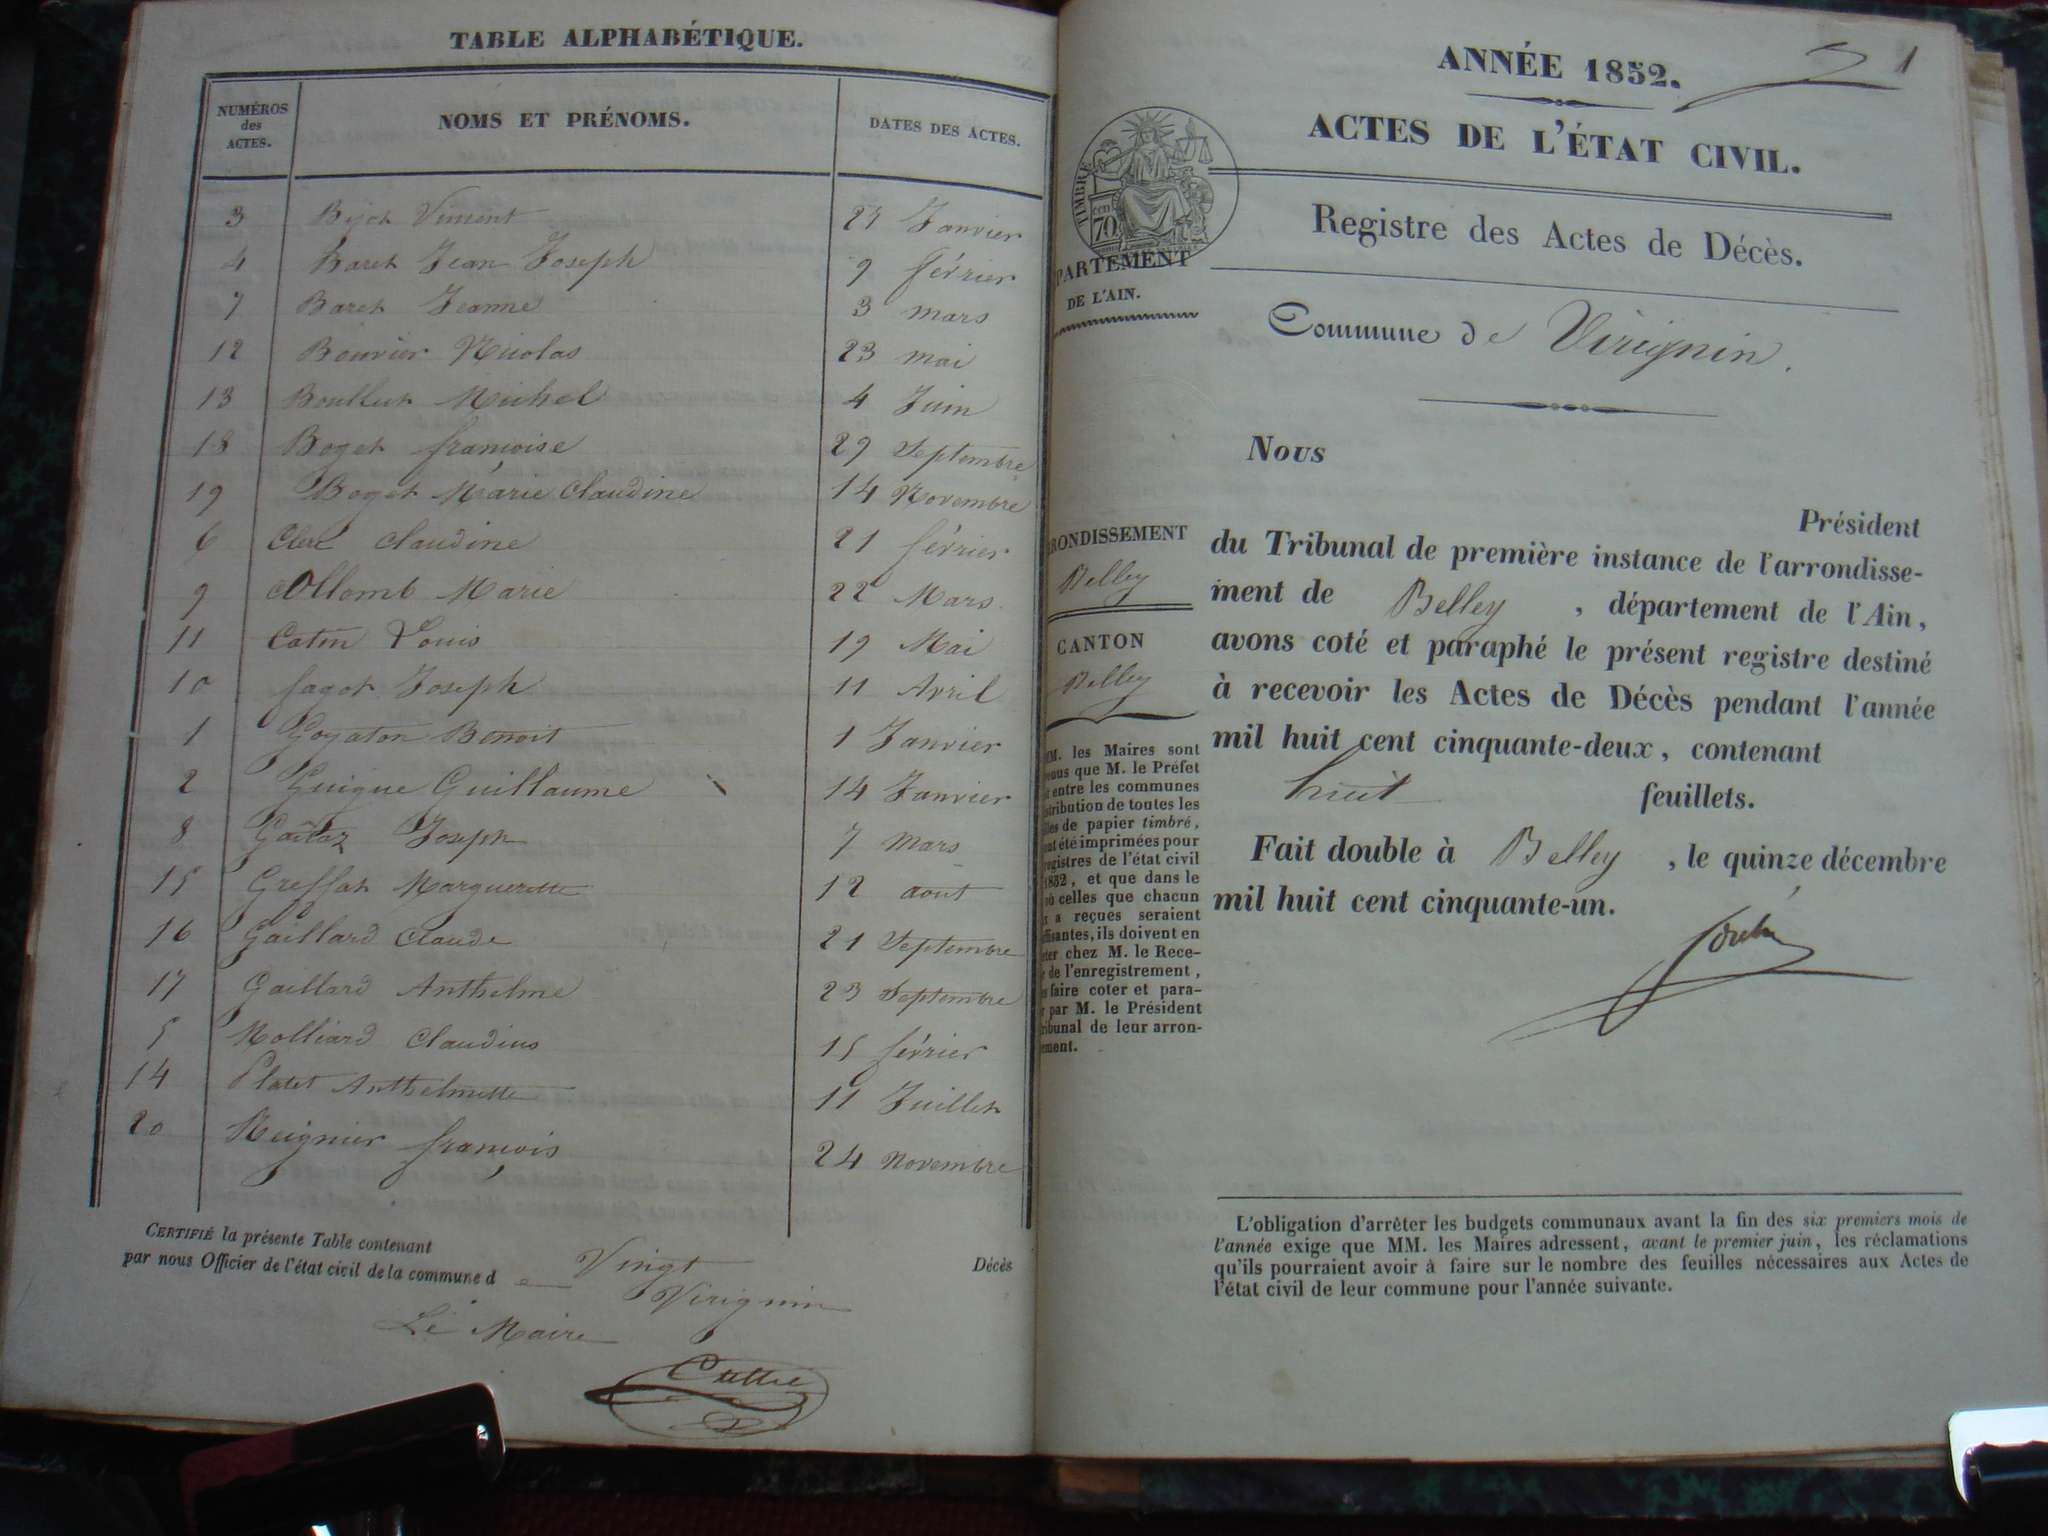 TABLE ALPHABÉTIQUE.
NUMÉROS
des
ACTES.
NOMS ET PRÉNOMS.
DATES DES ACTES.
3 Bijot Vincent 27 Janvier
4 Baret Jean Joseph 9 février
7 Baret Jeanne 3 mars
12 Bouvier Nicolas 23 mai
13 Boullut Michel 4 Juin
18 Boget françoise 29 Septembre
19 Boget Marie Claudine 14 Novembre
6 Clerc Claudine 21 février
9 Collomb Marie 22 Mars
11 Catin Louis 19 Mai
10 fagot Joseph 11 Avril
1 Goyaton Benoit 1 Janvier
2 Guigue Guillaume 14 Janvier
8 Joseph 7 mars
15 Greffat Marguerette 12 aout
16 Gaillard Claude 21 Septembre
17 Gaillard Anthelme 23 Septembre
5 Molliard Claudius 15 février
14 Platet Anthelmette 11 Juillet
20 Reignier françois 24 novembre
CERTIFIÉ la présente Table contenant Vingt Décès
par nous Officier de l'état civil de la commune de Virignin
Le Maire
ANNÉE 1852.
1
ACTES DE L'ÉTAT CIVIL.
TIMBRE
70
Registre des Actes de Décès.
PARTEMENT
DE L'AIN.
Commune de Virignin.
Nous
Président
RONDISSEMENT
Belley
CANTON
Belley
du Tribunal de première instance de l'arrondisse-
ment de Belley, département de l'Ain,
avons coté et paraphé le présent registre destiné
à recevoir les Actes de Décès pendant l'année
mil huit cent cinquante-deux, contenant
huit feuillets.
Fait double à Belley, le quinze décembre
mil huit cent cinquante-un.
MM. les Maires sont
enus que M. le Préfet
entre les communes
stribution de toutes les
lles de papier timbré,
nt été imprimées pour
egistres de l'état civil
1852, et que dans le
où celles que chacun
x a reçues seraient
ffisantes, ils doivent en
eter chez M. le Rece-
de l'enregistrement,
es faire coter et para-
r par M. le Président
ribunal de leur arron-
ement.
L'obligation d'arrêter les budgets communaux avant la fin des six premiers mois de
l'année exige que MM. les Maires adressent, avant le premier juin, les réclamations
qu'ils pourraient avoir à faire sur le nombre des feuilles nécessaires aux Actes de
l'état civil de leur commune pour l'année suivante.